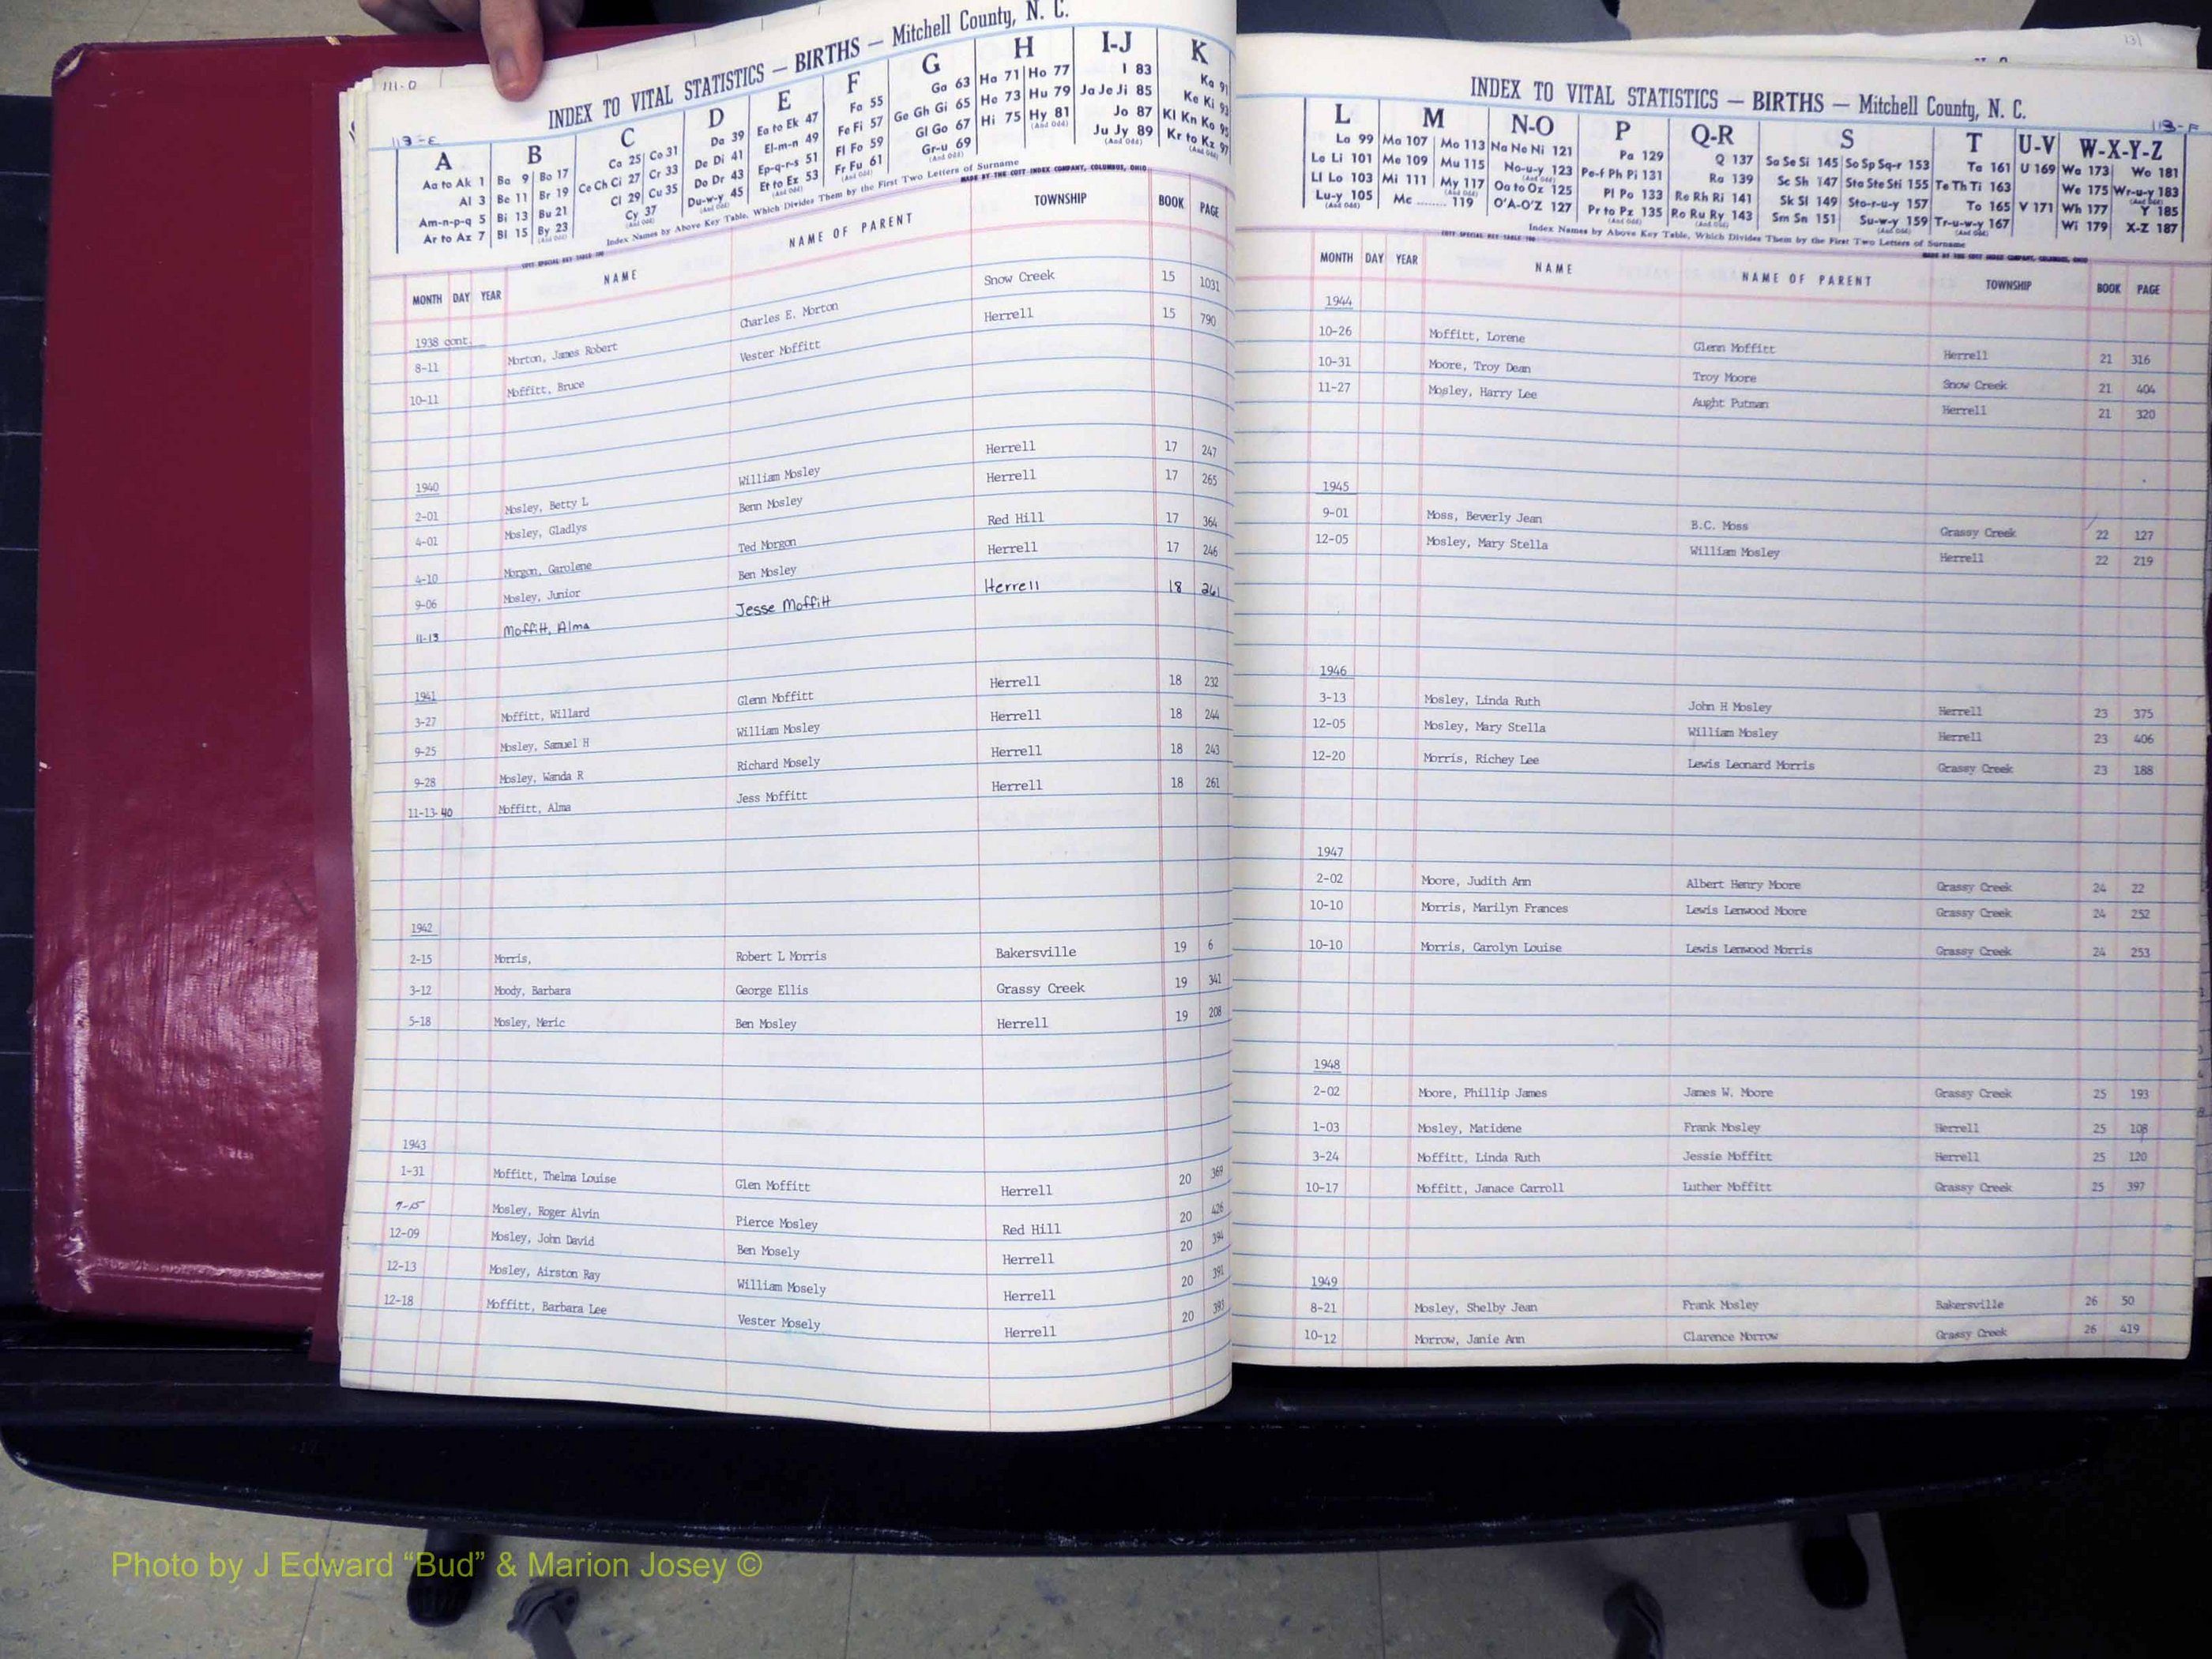 111-D
INDEX TO VITAL STATISTICS — BIRTHS — Mitchell County, N. C.
113-E
A B C D E F G H I-J K
Aa to Ak 1 Ba 9 Bo 17 Ca 25 Co 31 Da 39 Ea to Ek 47 Fa 55 Ga 63 Ha 71 Ho 77 I 83 Ka 91
Al 3 Be 11 Br 19 Ce Ch Ci 27 Cr 33 De Di 41 El-m-n 49 Fe Fi 57 Ge Gh Gi 65 He 73 Hu 79 Ja Je Ji 85 Ke Ki 93
Am-n-p-q 5 Bi 13 Bu 21 Cl 29 Cu 35 Do Dr 43 Ep-q-r-s 51 Fl Fo 59 Gl Go 67 Hi 75 Hy 81 Jo 87 Kl Kn Ko 95
Ar to Az 7 Bl 15 By 23 Cy 37 Du-w-y 45 Et to Ez 53 Fr Fu 61 Gr-u 69 Ju Jy 89 Kr to Kz 97
(And Odd) (And Odd) (And Odd) (And Odd) (And Odd) (And Odd) (And Odd) (And Odd)
Index Names by Above Key Table, Which Divides Them by the First Two Letters of Surname
COTT SPECIAL KEY TABLE MADE BY THE COTT INDEX COMPANY, COLUMBUS, OHIO
MONTH DAY YEAR NAME NAME OF PARENT TOWNSHIP BOOK PAGE
1938 cont.
8-11 Morton, James Robert Charles E. Morton Snow Creek 15 1031
10-11 Moffitt, Bruce Vester Moffitt Herrell 15 790
1940
2-01 Mosley, Betty L William Mosley Herrell 17 247
4-01 Mosley, Gladlys Benn Mosley Herrell 17 265
4-10 Morgon, Garolene Ted Morgon Red Hill 17 364
9-06 Mosley, Junior Ben Mosley Herrell 17 246
11-13 Moffitt, Alma Jesse Moffitt Herrell 18 261
1941
3-27 Moffitt, Willard Glenn Moffitt Herrell 18 232
9-25 Mosley, Samuel H William Mosley Herrell 18 244
9-28 Mosley, Wanda R Richard Mosely Herrell 18 243
11-13-40 Moffitt, Alma Jess Moffitt Herrell 18 261
1942
2-15 Morris, Robert L Morris Bakersville 19 6
3-12 Moody, Barbara George Ellis Grassy Creek 19 341
5-18 Mosley, Meric Ben Mosley Herrell 19 208
1943
1-31 Moffitt, Thelma Louise Glen Moffitt Herrell 20 369
9-15 Mosley, Roger Alvin Pierce Mosley Red Hill 20 426
12-09 Mosley, John David Ben Mosely Herrell 20 394
12-13 Mosley, Airston Ray William Mosely Herrell 20 391
12-18 Moffitt, Barbara Lee Vester Mosely Herrell 20 393
131
INDEX TO VITAL STATISTICS — BIRTHS — Mitchell County, N. C.
113-F
L M N-O P Q-R S T U-V W-X-Y-Z
La 99 Ma 107 Mo 113 Na Ne Ni 121 Pa 129 Q 137 Sa Se Si 145 So Sp Sq-r 153 Ta 161 U 169 Wa 173 Wo 181
Le Li 101 Me 109 Mu 115 No-u-y 123 Pe-f Ph Pi 131 Ra 139 Sc Sh 147 Sta Ste Sti 155 Te Th Ti 163 We 175 Wr-u-y 183
Ll Lo 103 Mi 111 My 117 Oa to Oz 125 Pl Po 133 Re Rh Ri 141 Sk Sl 149 Sto-r-u-y 157 To 165 V 171 Wh 177 Y 185
Lu-y 105 Mc ........ 119 O'A-O'Z 127 Pr to Pz 135 Ro Ru Ry 143 Sm Sn 151 Su-w-y 159 Tr-u-w-y 167 Wi 179 X-Z 187
(And Odd) (And Odd) (And Odd) (And Odd) (And Odd) (And Odd) (And Odd) (And Odd)
Index Names by Above Key Table, Which Divides Them by the First Two Letters of Surname
COTT SPECIAL KEY TABLE MADE BY THE COTT INDEX COMPANY, COLUMBUS, OHIO
MONTH DAY YEAR NAME NAME OF PARENT TOWNSHIP BOOK PAGE
1944
10-26 Moffitt, Lorene Glenn Moffitt Herrell 21 316
10-31 Moore, Troy Dean Troy Moore Snow Creek 21 404
11-27 Mosley, Harry Lee Aught Putman Herrell 21 320
1945
9-01 Moss, Beverly Jean B.C. Moss Grassy Creek 22 127
12-05 Mosley, Mary Stella William Mosley Herrell 22 219
1946
3-13 Mosley, Linda Ruth John H Mosley Herrell 23 375
12-05 Mosley, Mary Stella William Mosley Herrell 23 406
12-20 Morris, Richey Lee Lewis Leonard Morris Grassy Creek 23 188
1947
2-02 Moore, Judith Ann Albert Henry Moore Grassy Creek 24 22
10-10 Morris, Marilyn Frances Lewis Lenwood Moore Grassy Creek 24 252
10-10 Morris, Carolyn Louise Lewis Lenwood Morris Grassy Creek 24 253
1948
2-02 Moore, Phillip James James W. Moore Grassy Creek 25 193
1-03 Mosley, Matidene Frank Mosley Herrell 25 108
3-24 Moffitt, Linda Ruth Jessie Moffitt Herrell 25 120
10-17 Moffitt, Janace Carroll Luther Moffitt Grassy Creek 25 397
1949
8-21 Mosley, Shelby Jean Frank Mosley Bakersville 26 50
10-12 Morrow, Janie Ann Clarence Morrow Grassy Creek 26 419
Photo by J Edward “Bud” & Marion Josey ©